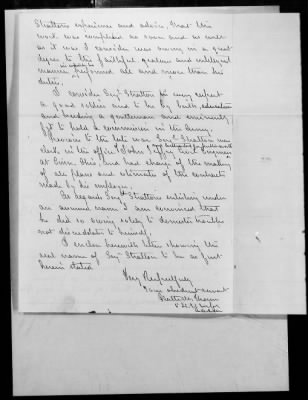 Stratton's experience and advice, that the
work was completed as soon and as well
as it was. I consider was owing in a great
degree to the faithful, zealous and intelligent
manner in which he performed all and more than his
duties.
I consider Serg't Stratton in every respect
a good soldier and to be by birth, education
and breeding a gentleman and eminently
fit to hold a commission in the Army.
Previous to the late war Serg't Stratton was
clerk in the office of John
at Ohio, and had charge of the making
of all plans and estimates of the contracts
made by his employer.
As regards Serg't Stratton's enlisting under
an assumed name I am convinced that
he did so owing solely to domestic troubles
not discreditable to himself.
I enclose herewith letter showing the
real name of Serg't Stratton to be as first
herein stated.
Very Respectfully
Your obedient servant